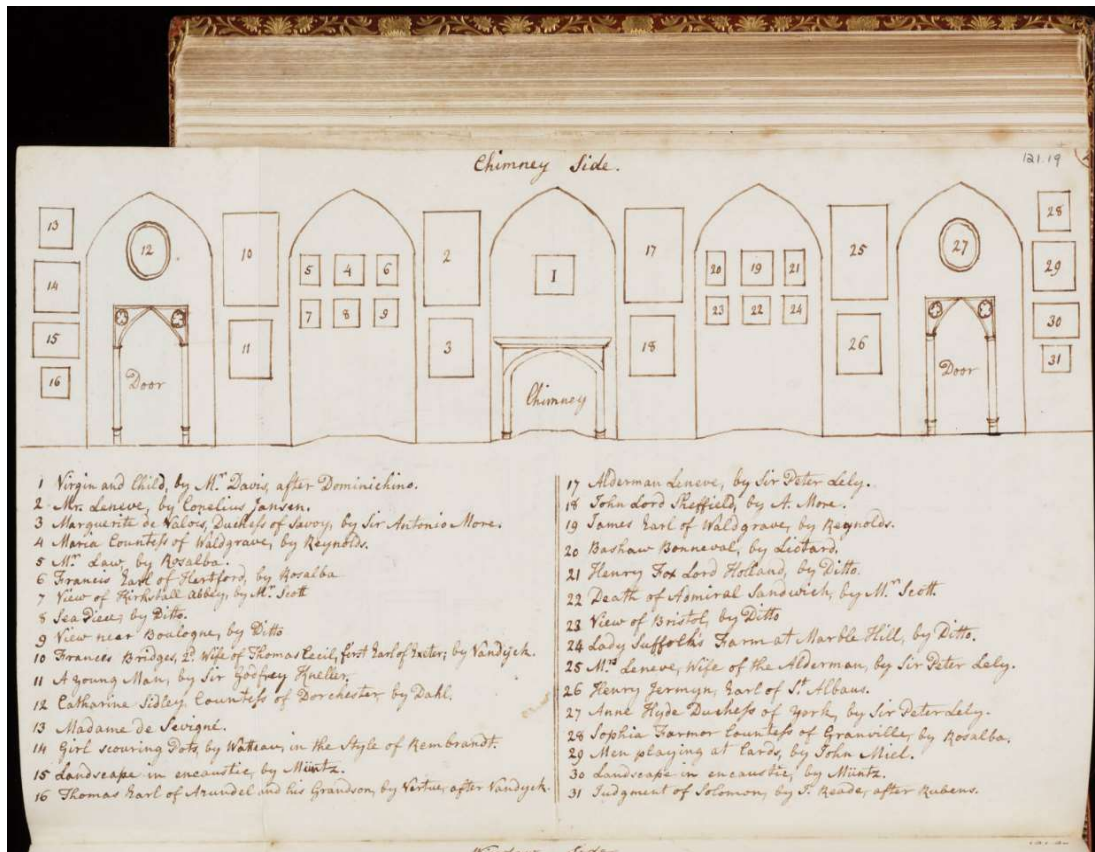 Chimney Side.
121.19
13
12
10
5
4
6
2
1
17
20
19
21
25
27
28
14
7
8
9
23
22
24
29
15
11
3
18
26
30
16
31
Door
Chimney
Door
1 Virgin and Child, by Mr. Davis, after Dominichino.
2 Mr. Leneve, by Conelius Jansen.
3 Marguerite de Valois, Duchess of Savoy, by Sir Antonio More.
4 Maria Countess of Waldgrave, by Reynolds.
5 Mr. Law, by Rosalba.
6 Francis Earl of Hertford, by Rosalba
7 View of Kirkstall Abbey, by Mr. Scott
8 Sea Piece, by Ditto.
9 View near Boulogne, by Ditto
10 Frances Bridges, 2d. Wife of Thomas Cecil, first Earl of Exeter; by Vandyck.
11 A young Man, by Sir Godfrey Kneller,
12 Catharine Sidley, Countess of Dorchester, by Dahl.
13 Madame de Sevigné.
14 Girl scouring Pots, by Watteau, in the Style of Rembrandt.
15 Landscape in encaustic, by Müntz.
16 Thomas Earl of Arundel and his Grandson, by Vertue, after Vandyck.
17 Alderman Leneve, by Sir Peter Lely.
18 John Lord Sheffield, by A. More.
19 James Earl of Waldgrave, by Reynolds.
20 Bashaw Bonneval, by Liotard.
21 Henry Fox Lord Holland, by Ditto.
22 Death of Admiral Sandwich, by Mr. Scott.
23 View of Bristol, by Ditto
24 Lady Suffolk's Farm at Marble Hill, by Ditto.
25 Mrs Leneve, Wife of the Alderman, by Sir Peter Lely.
26 Henry Jermyn, Earl of St. Albans.
27 Anne Hyde Duchess of York, by Sir Peter Lely.
28 Sophia Farmor Countess of Granville, by Rosalba.
29 Men playing at Cards, by John Miel.
30 Landscape in encaustic, by Müntz.
31 Judgment of Solomon, by T. Reade, after Rubens.